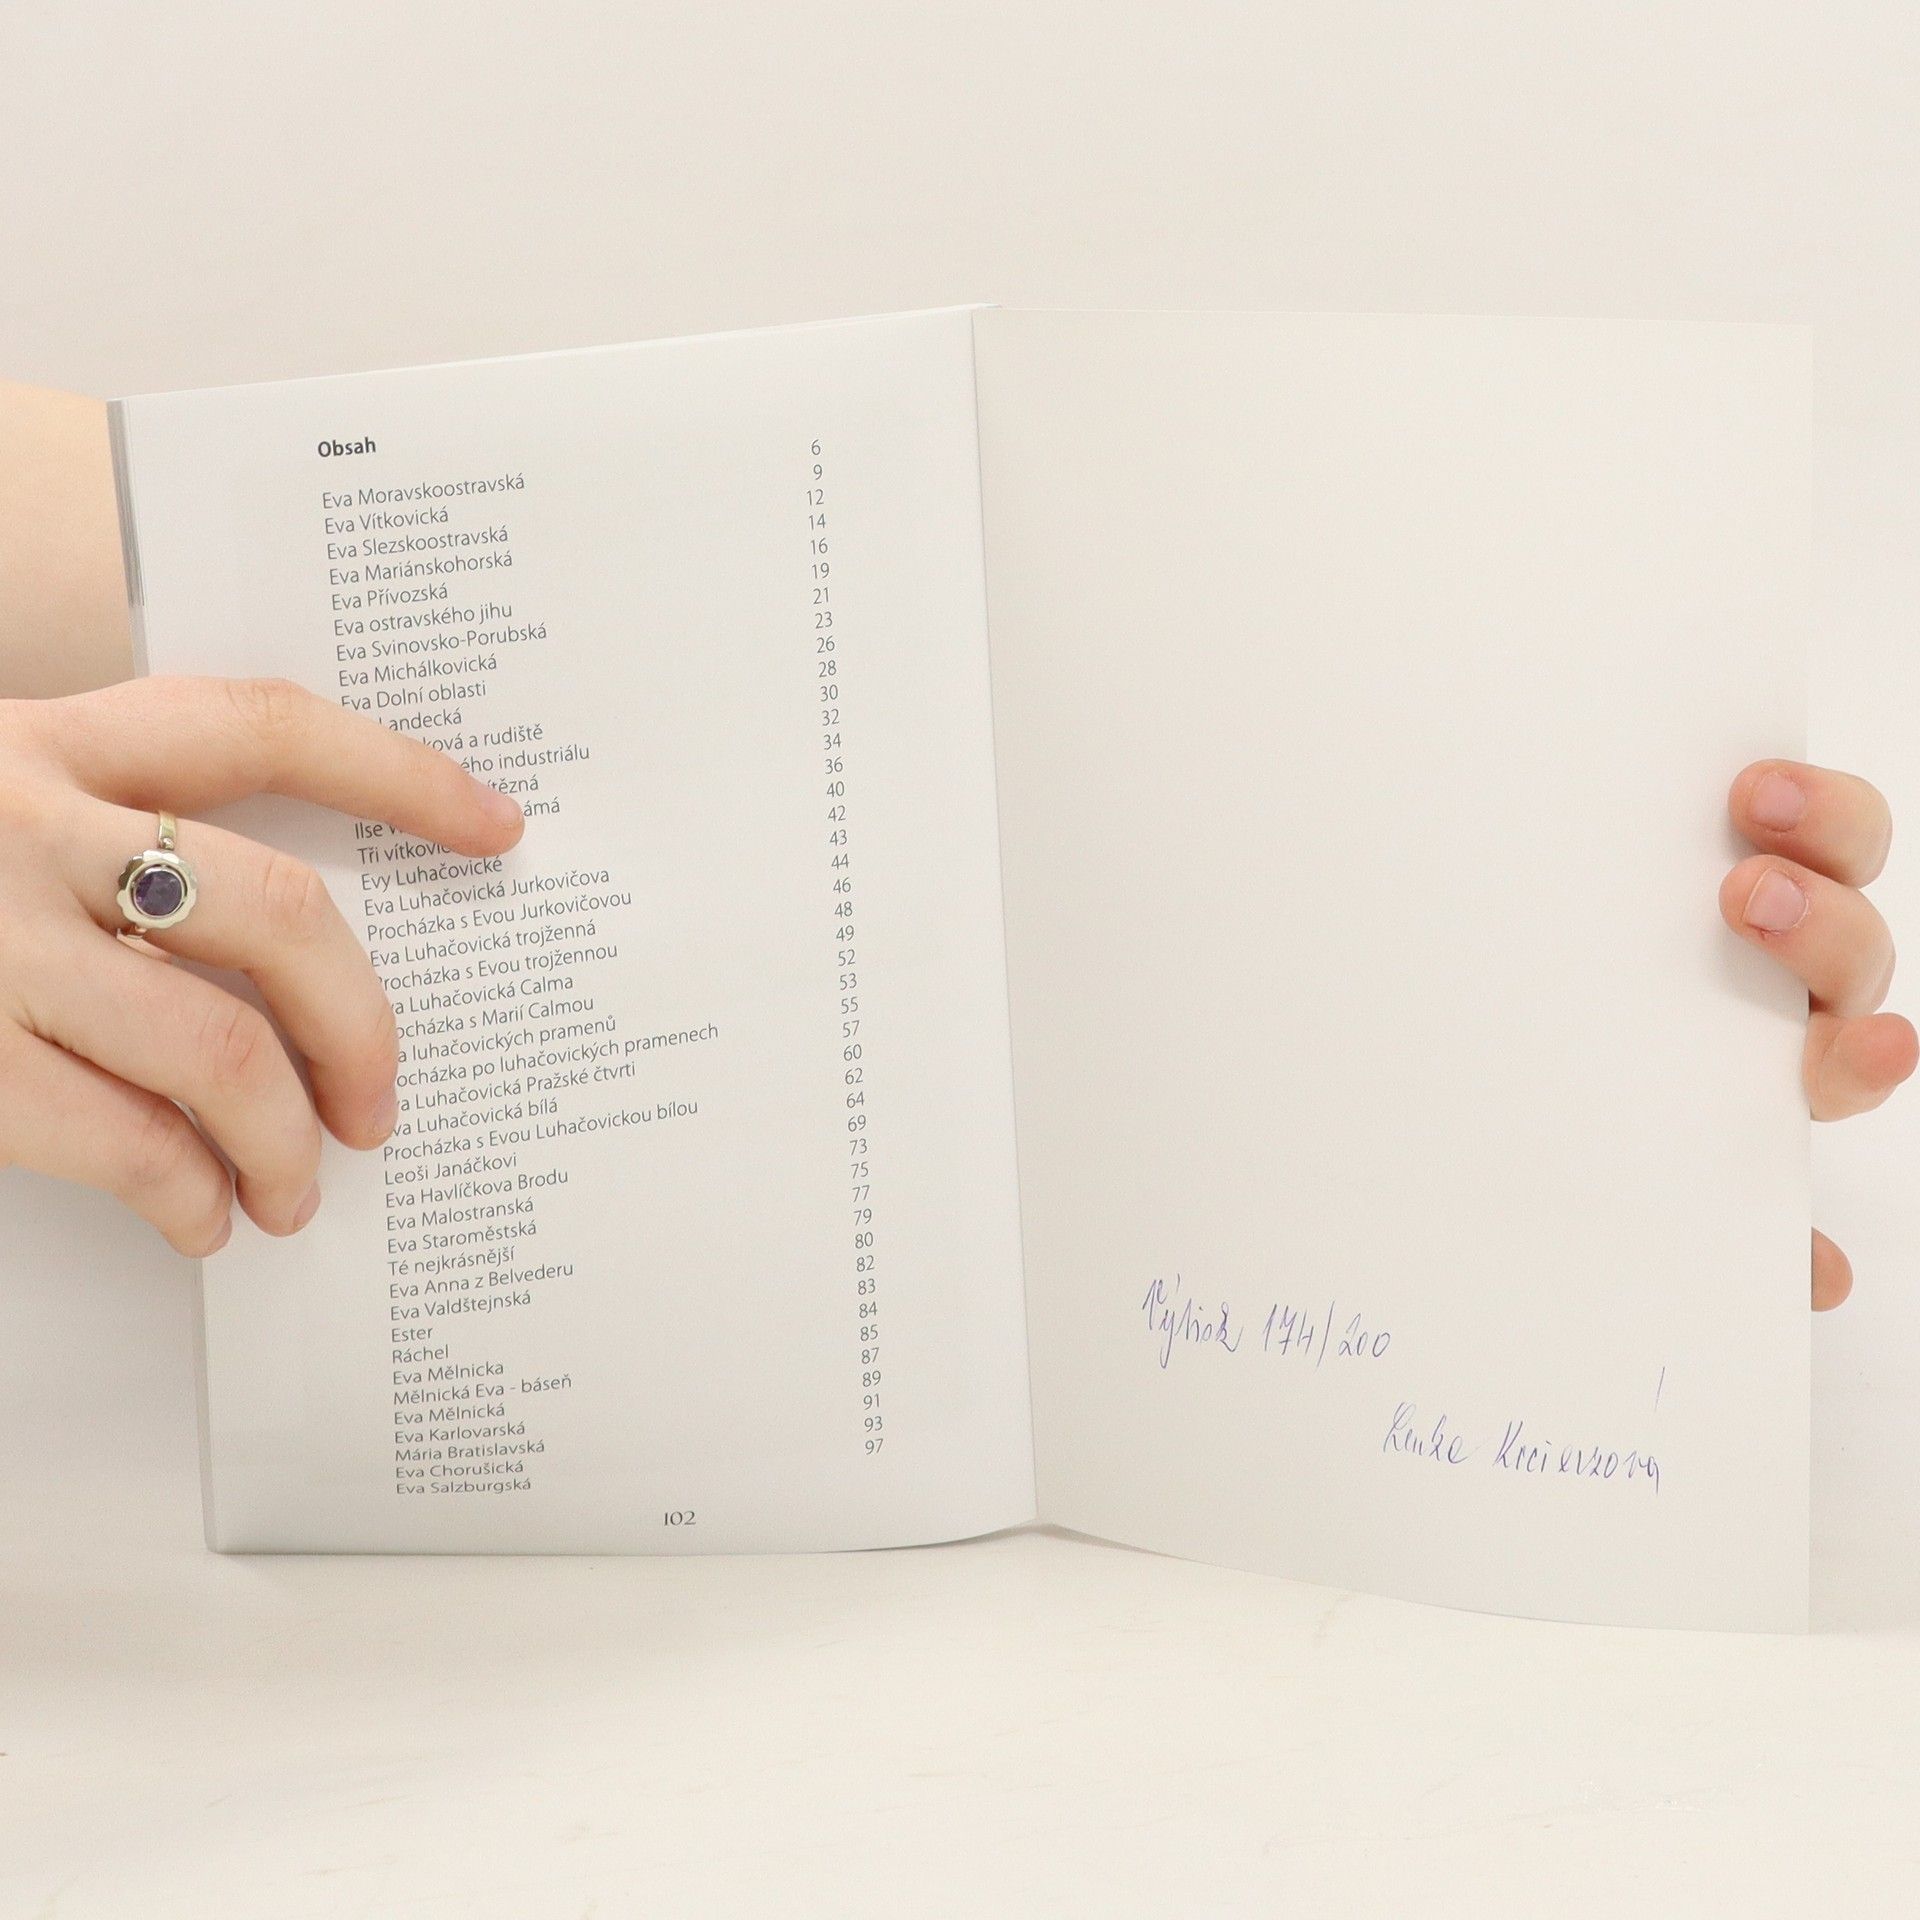 Obsah
Eva Moravskoostravská 6
Eva Vítkovická 9
Eva Slezskoostravská 12
Eva Mariánskohorská 14
Eva Přívozská 16
Eva ostravského jihu 19
Eva Svinovsko-Porubská 21
Eva Michálkovická 23
Eva Dolní oblasti 26
Landecká 28
a rudiště 30
industriálu 32
34
Ilse 36
Tři 40
Evy Luhačovické 42
Eva Luhačovická Jurkovičova 43
Procházka s Evou Jurkovičovou 44
Eva Luhačovická trojženná 46
Procházka s Evou trojžennou 48
Eva Luhačovická Calma 49
Procházka s Marií Calmou 52
Eva luhačovických pramenů 53
Procházka po luhačovických pramenech 55
Eva Luhačovická Pražské čtvrti 57
Eva Luhačovická bílá 60
Procházka s Evou Luhačovickou bílou 62
Leoši Janáčkovi 64
Eva Havlíčkova Brodu 69
Eva Malostranská 73
Eva Staroměstská 75
Té nejkrásnější 77
Eva Anna z Belvederu 79
Eva Valdštejnská 80
Ester 82
Ráchel 83
Eva Mělnicka 84
Mělnická Eva - báseň 85
Eva Mělnická 87
Eva Karlovarská 89
Mária Bratislavská 91
Eva Chorušická 93
Eva Salzburgská 97
102
Výtisk 174/200
Lenka